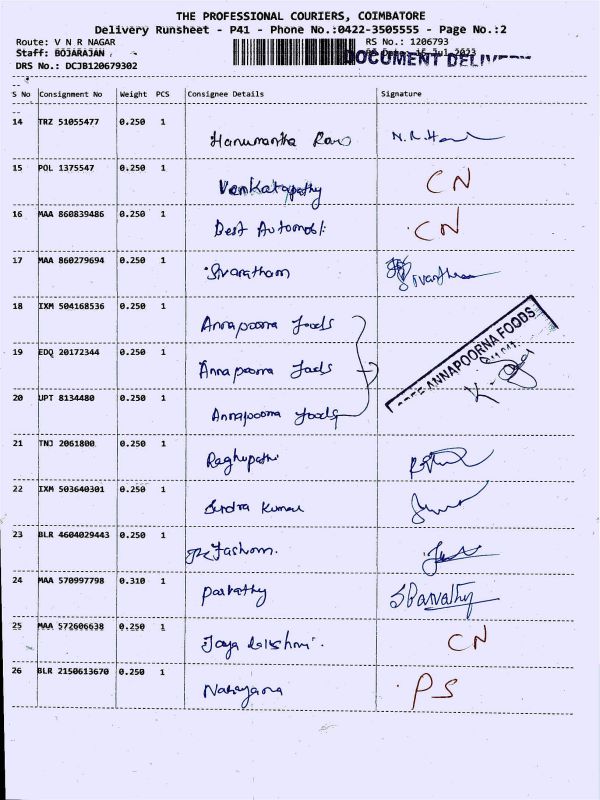 THE PROFESSIONAL COURIERS, COIMBATORE
Delivery Runsheet - P41 - Phone No.:0422-3505555 - Page No.:2
Route: V N R NAGAR RS No.: 1206793
Staff: BOJARAJAN , 15 Jul 2023
DOCUMENT
DRS No.: DCJB120679302
S No Consignment No Weight PCS Consignee Details Signature
14 TRZ 51055477 0.250 1
Hanumantha Rao
15 POL 1375547 0.250 1
Venkatapathy CN
16 MAA 860839486 0.250 1
Best Automobl. CN
17 MAA 860279694 0.250 1
Sivaratham
18 IXM 504168536 0.250 1
Annapoorna foods
19 EDQ 20172344 0.250 1
Annapoorna foods ANNAPOORNA FOODS
20 UPT 8134480 0.250 1
Annapoorna foods
21 TNJ 2061800 0.250 1
Raghupathi
22 IXM 503640301 0.250 1
Kumar
23 BLR 4604029443 0.250 1
Fashion.
24 MAA 570997798 0.310 1
Parvathy S Parvathy
25 MAA 572606638 0.250 1
Jaya lakshmi. CN
26 BLR 2150613670 0.250 1
Narayana PS